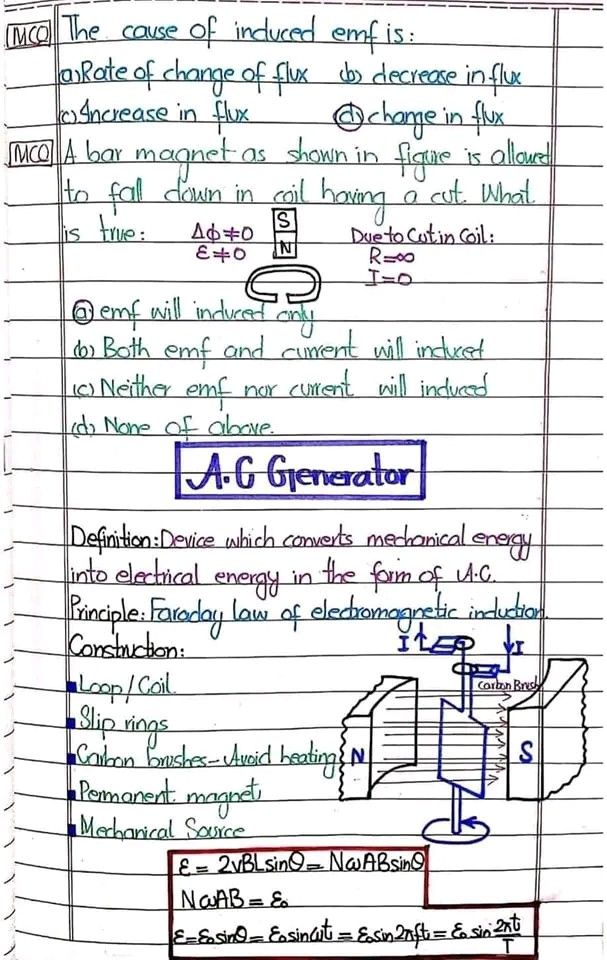 MCQ The cause of induced emf is:
(a) Rate of change of flux (b) decrease in flux
(c) Increase in flux (d) change in flux
MCQ A bar magnet as shown in figure is allowed
to fall down in coil having a cut. What
is true: Δϕ≠0 S Due to Cut in Coil:
ε≠0 N R=∞
I=0
(a) emf will induced only
(b) Both emf and current will induced
(c) Neither emf nor current will induced
(d) None of above.
A.C Generator
Definition: Device which converts mechanical energy
into electrical energy in the form of A.C.
Principle: Faraday law of electromagnetic induction.
Construction: I I
Loop/Coil Carbon Brush
Slip rings
Carbon brushes - Avoid heating N S
Permanent magnet
Mechanical Source
ε = 2vBLsinθ = NωABsinθ
NωAB = ε₀
ε=ε₀sinθ=ε₀sinωt=ε₀sin2πft=ε₀ sin 2πt/T